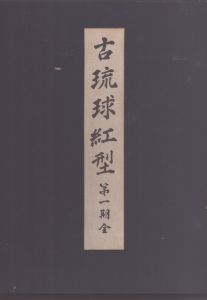 古琉球紅型 第一期全